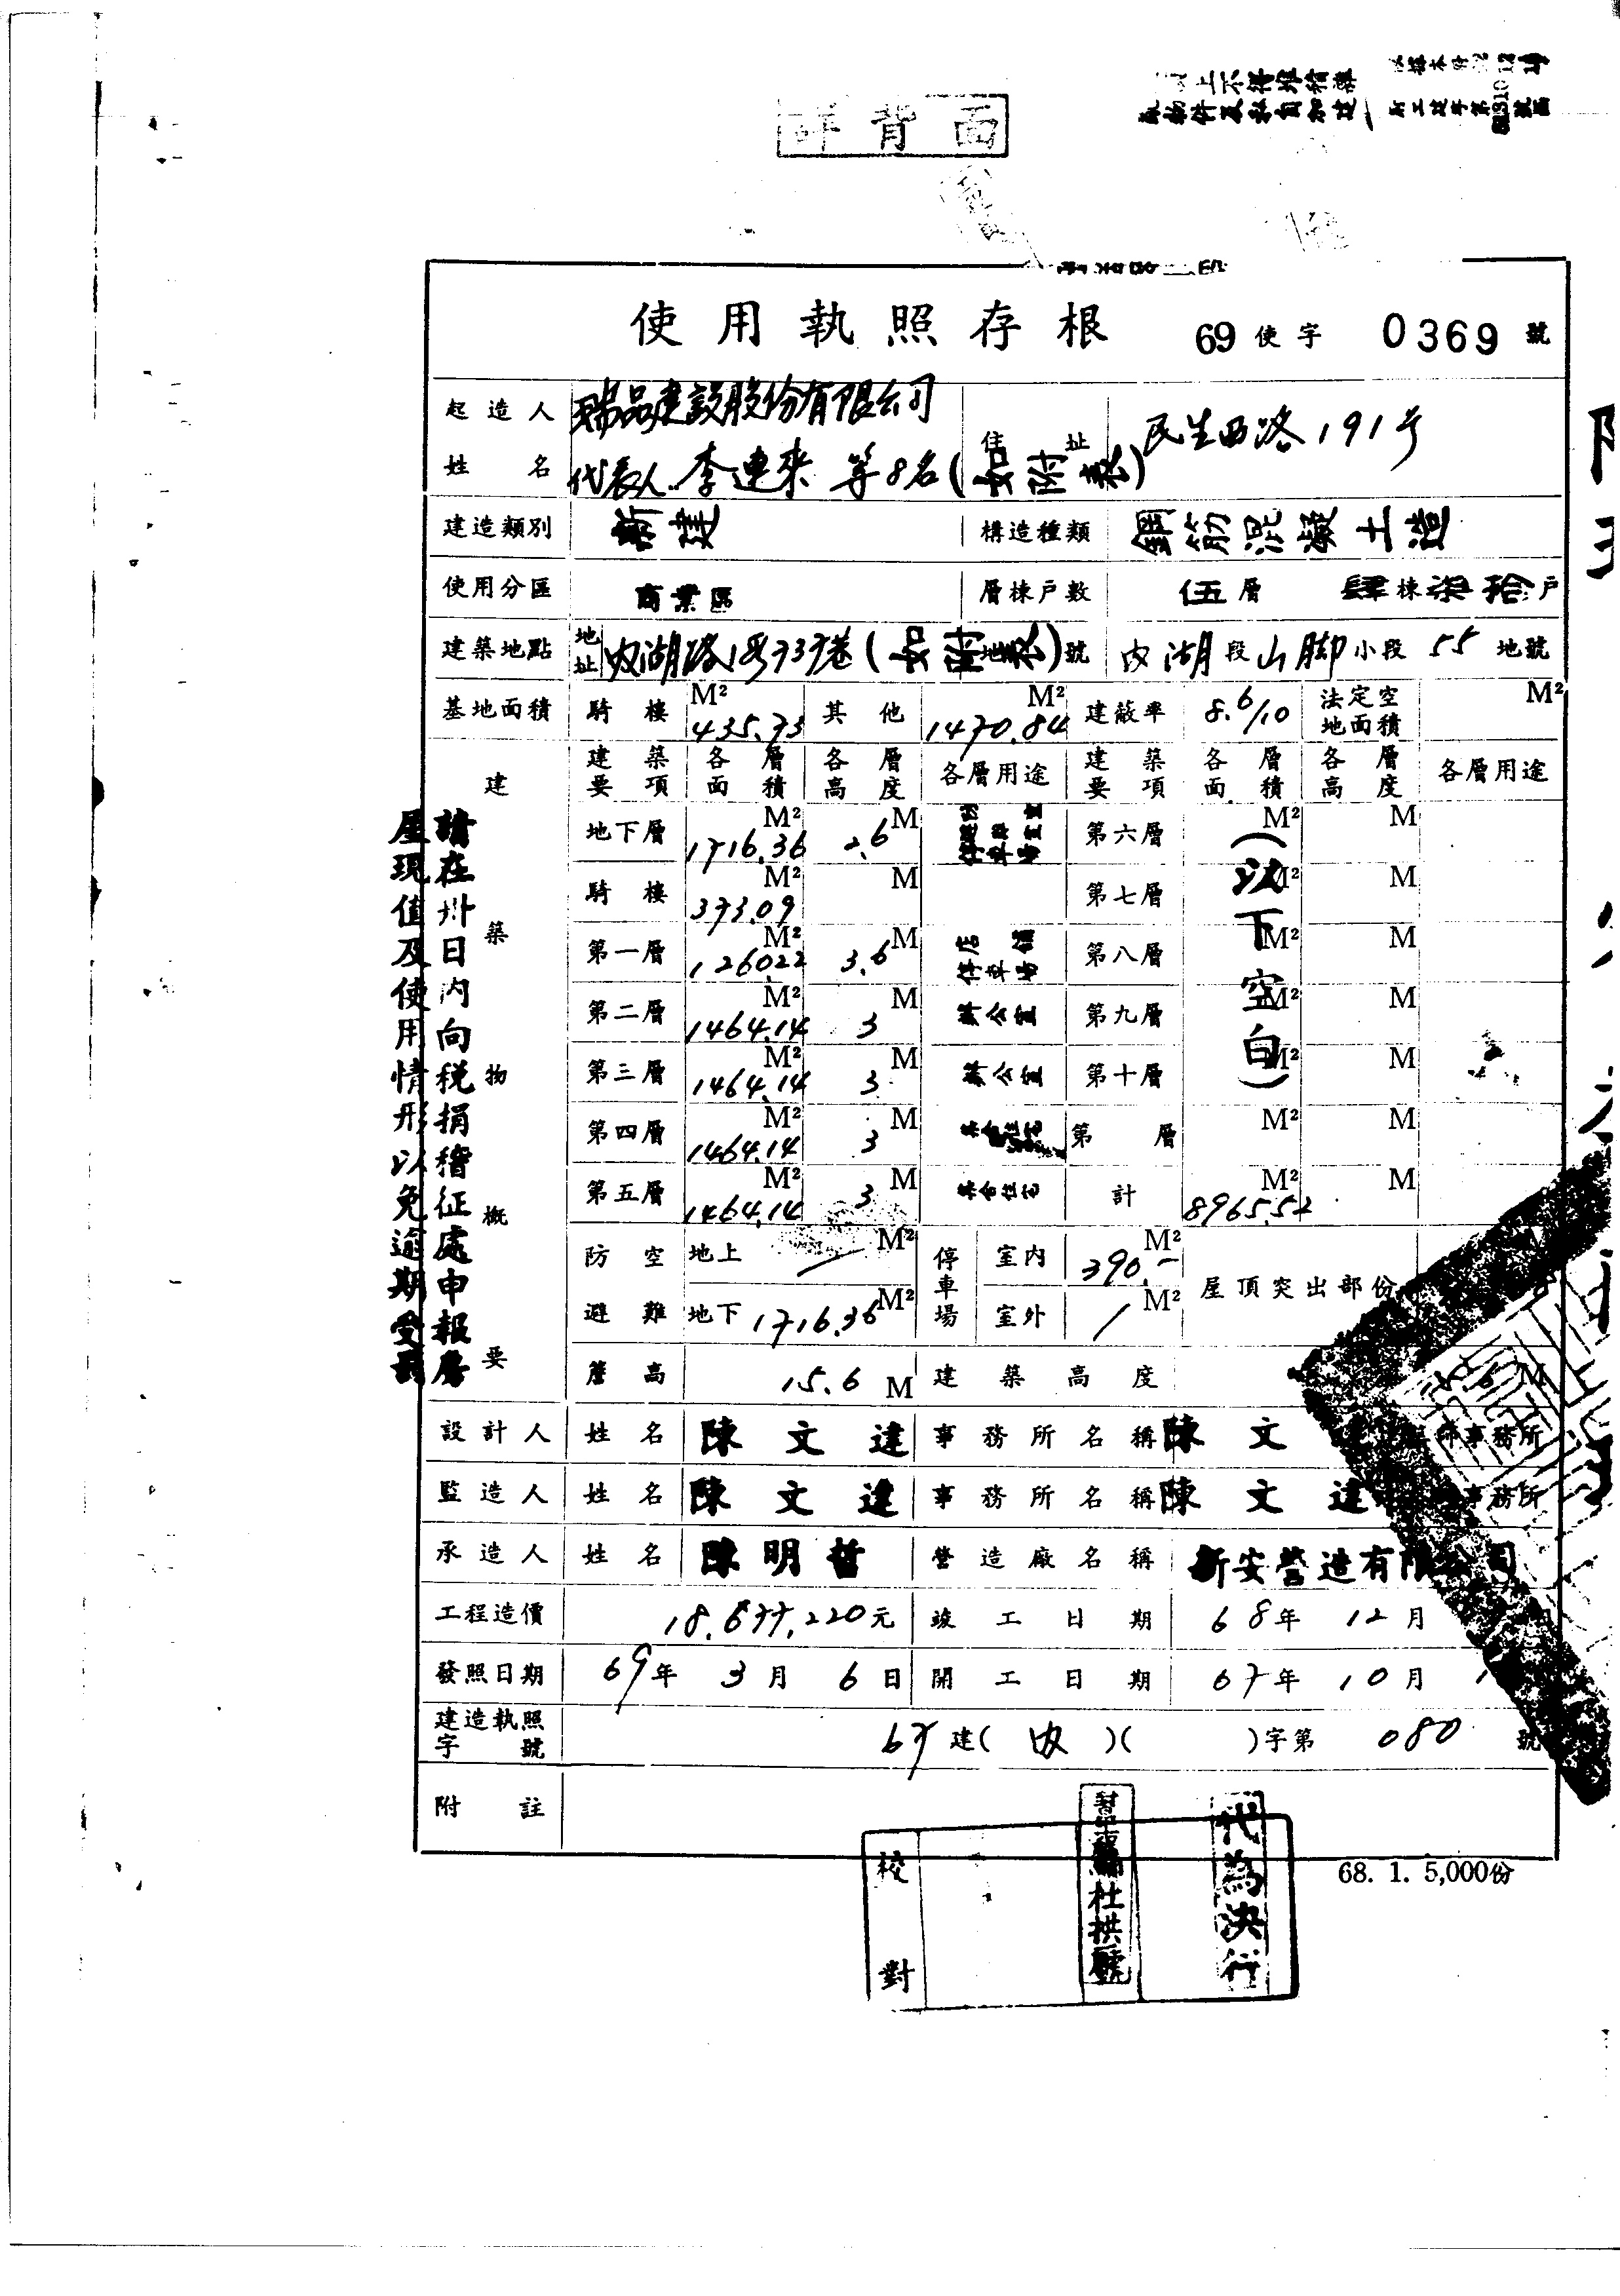 詳背面
使用執照存根 69使字 0369 號
起造人姓名 瑞品建設股份有限公司 代表人 李連來 等8名(如附表) 住址 民生西路191号
建造類別 新建 構造種類 鋼筋混凝土造
使用分區 商業區 層棟戶數 伍層 肆棟柒拾戶
建築地點 地址 內湖路1段737巷 地號 內湖段山腳小段 55 地號
基地面積 騎樓 435.73 M² 其他 1470.84 M² 建蔽率 8.6/10 法定空地面積 M²
建築物概要
建築要項 各層面積 各層高度 各層用途 建築要項 各層面積 各層高度 各層用途
地下層 1716.36 M² 2.6 M 第六層 M² M
騎樓 373.09 M² M 第七層 M² M
第一層 1260.22 M² 3.6 M 店舖 停車場 第八層 M² M
第二層 1464.14 M² 3 M 辦公室 第九層 M² M
第三層 1464.14 M² 3 M 辦公室 第十層 M² M
第四層 1464.14 M² 3 M 集合住宅 第 層 M² M
第五層 1464.14 M² 3 M 集合住宅 計 8965.52 M² M
(以下空白)
防空避難 地上 M² 停車場 室內 390.- M² 屋頂突出部份
地下 1716.36 M² 室外 M²
簷高 15.6 M 建築高度 M
設計人 姓名 陳文達 事務所名稱 陳文 事務所
監造人 姓名 陳文達 事務所名稱 陳文達 事務所
承造人 姓名 陳明哲 營造廠名稱 新安營造有限公司
工程造價 18,677,220元 竣工日期 68年 12月
發照日期 69年 3月 6日 開工日期 67年 10月
建造執照字號 67 建(內)( )字第 080 號
附註
請在卅日內向稅捐稽征處申報房
屋現值及使用情形以免逾期受罰
68. 1. 5,000份
校對
代為決行